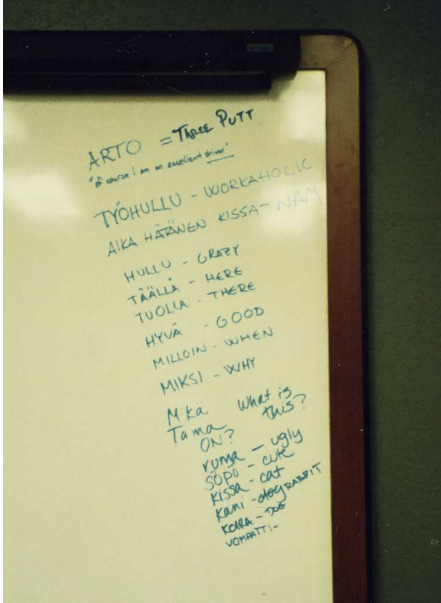 ARTO = THREE PUTT
"of course I am an excellent driver"
TYÖHULLU - WORKAHOLIC
AIKA HÄÄNEN KISSA - NAM
HULLU - CRAZY
TÄÄLLÄ - HERE
TUOLLA - THERE
HYVÄ - GOOD
MILLOIN - WHEN
MIKSI - WHY
Mkä What is
Tama this?
ON?
ruma - ugly
SÖPÖ - cute
KISSA - cat
Kani - RABBIT
KOIRA - DOG
VOMPATTI -